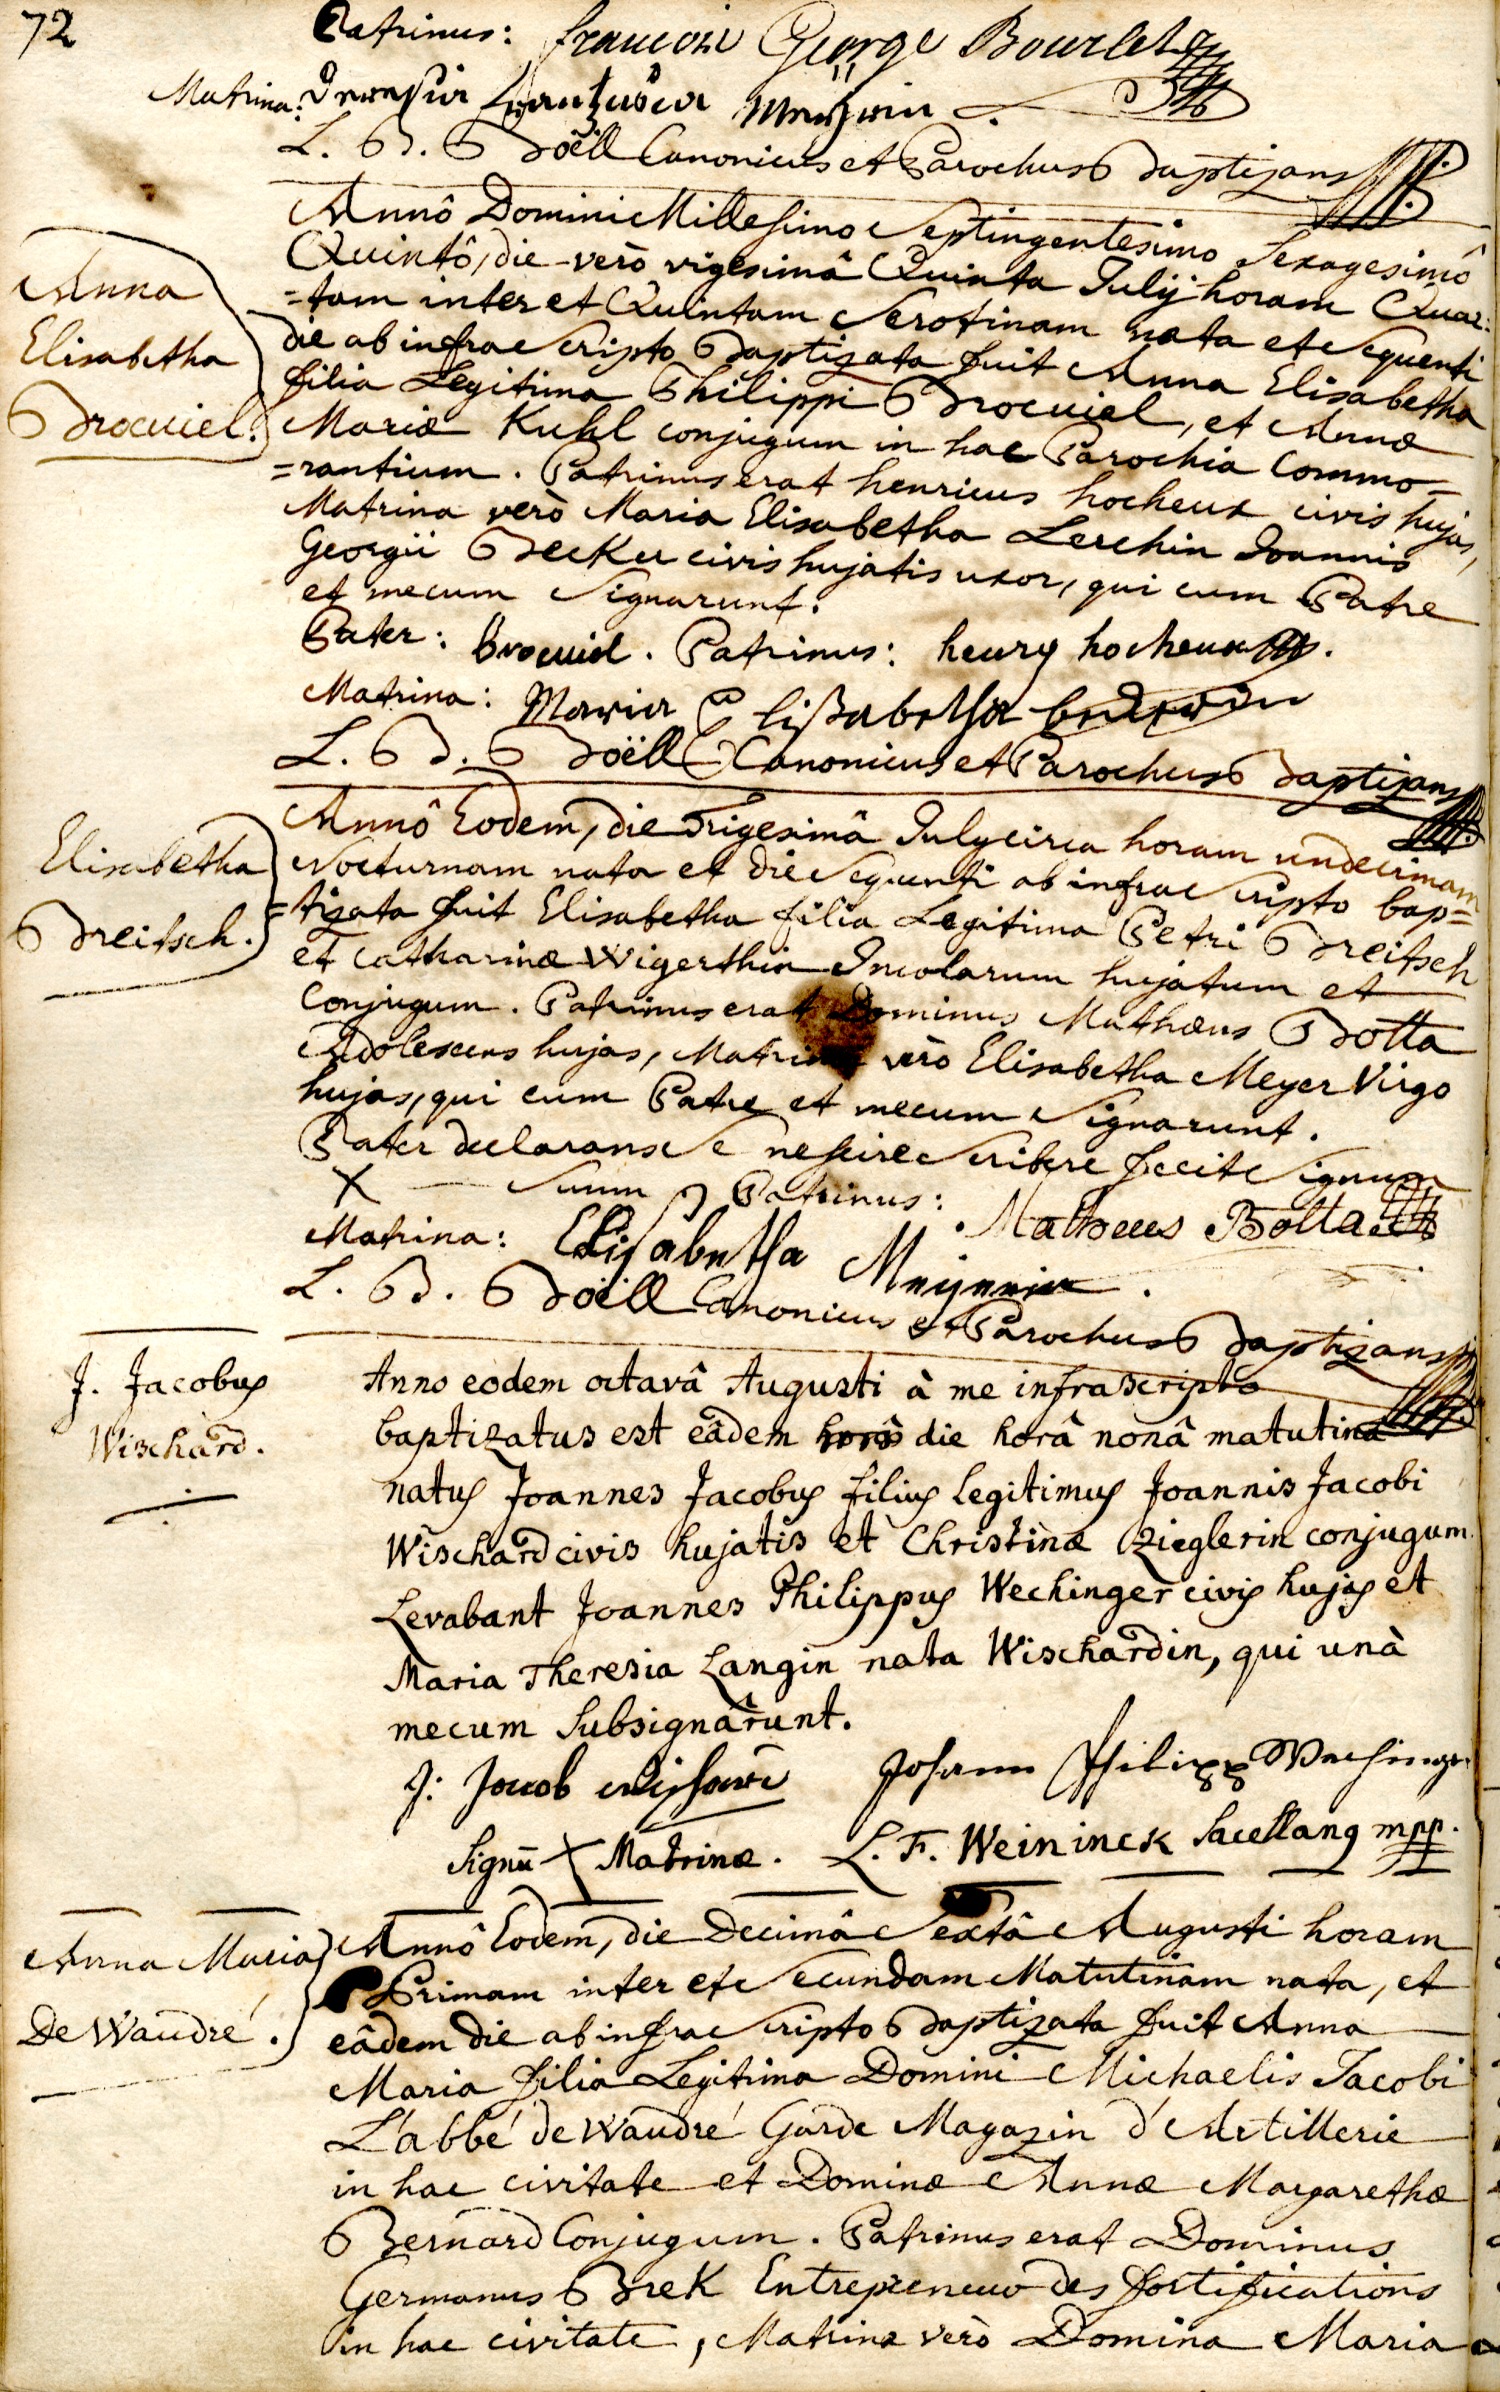 72
Patrinus: francois George Bourlet
Matrina:
L. B. Böëll Canonicus et Parochus Baptizans
Anna
Elisabetha
Brocuiel.
Annô Domini Millesimo Septingentesimo Sexagesimô
Quintô, die verò vigesimâ Quinta Julij horam Quar:
=tam inter et Quintam Serotinam nata et Sequenti
die ab infra Scripto Baptizata fuit Anna Elisabetha
filia Legitima Philippi Brocuiel, et Annæ
Mariæ Kuhl conjugum in hac Parochia Commo=
=rantium. Patrinus erat henricus hocheux civis hujas,
Matrina verò Maria Elisabetha Lerchin Joannis
Georgii Becker civis hujatis uxor, qui cum Patre
et mecum Signarunt.
Pater: Brocuiel. Patrinus: henry hocheux.
Matrina: Maria Elisabetha
L. B. Böëll Canonicus et Parochus Baptizans
Elisabetha
Breitsch.
Annô Eodem, die Trigesimâ July circa horam undecimam
Nocturnam nata et die Sequenti ab infra Scripto bap=
=tizata fuit Elisabetha filia Legitima Petri Breitsch
et Catharinæ Wigerthin Incolarum hujatum et
Conjugum. Patrinus erat Dominus Mathæus Botta
Adolescens hujas, Matrina verò Elisabetha Meyer Virgo
hujas, qui cum Patre et mecum Signarunt.
Pater declarans Se nescire Scribere fecit Signum
X Suum Patrinus: Matheus Botta
Matrina: Elisabetha Meyerin.
L. B. Böëll Canonicus et Parochus Baptizans
J. Jacobus
Wischard.
Anno eodem octavâ Augusti à me infrascripto
baptizatus est eâdem horâ die horâ nonâ matutina
natus Joannes Jacobus filius legitimus Joannis Jacobi
Wischard civis hujatis et Christinæ Zieglerin conjugum.
Levabant Joannes Philippus Wechinger civis hujas et
Maria Theresia Langin nata Wischardin, qui unà
mecum subsignârunt.
J: Jacob Johann Philipp Wechinger
Signū X Matrinæ. L. F. Weininck Sacellanus mpp.
Anna Maria
De Waudré.
Annô Eodem, die Decimâ Sextâ Augusti horam
Primam inter et Secundam Matutinam nata, et
eâdem die ab infra Scripto Baptizata fuit Anna
Maria filia Legitima Domini Michaelis Jacobi
L'abbé de Waudré Garde Magazin d'Artillerie
in hac civitate et Dominæ Annæ Margarethæ
Bernard Conjugum. Patrinus erat Dominus
Germanus Brek Entrepreneur des fortifications
in hac civitate, Matrina verò Domina Maria